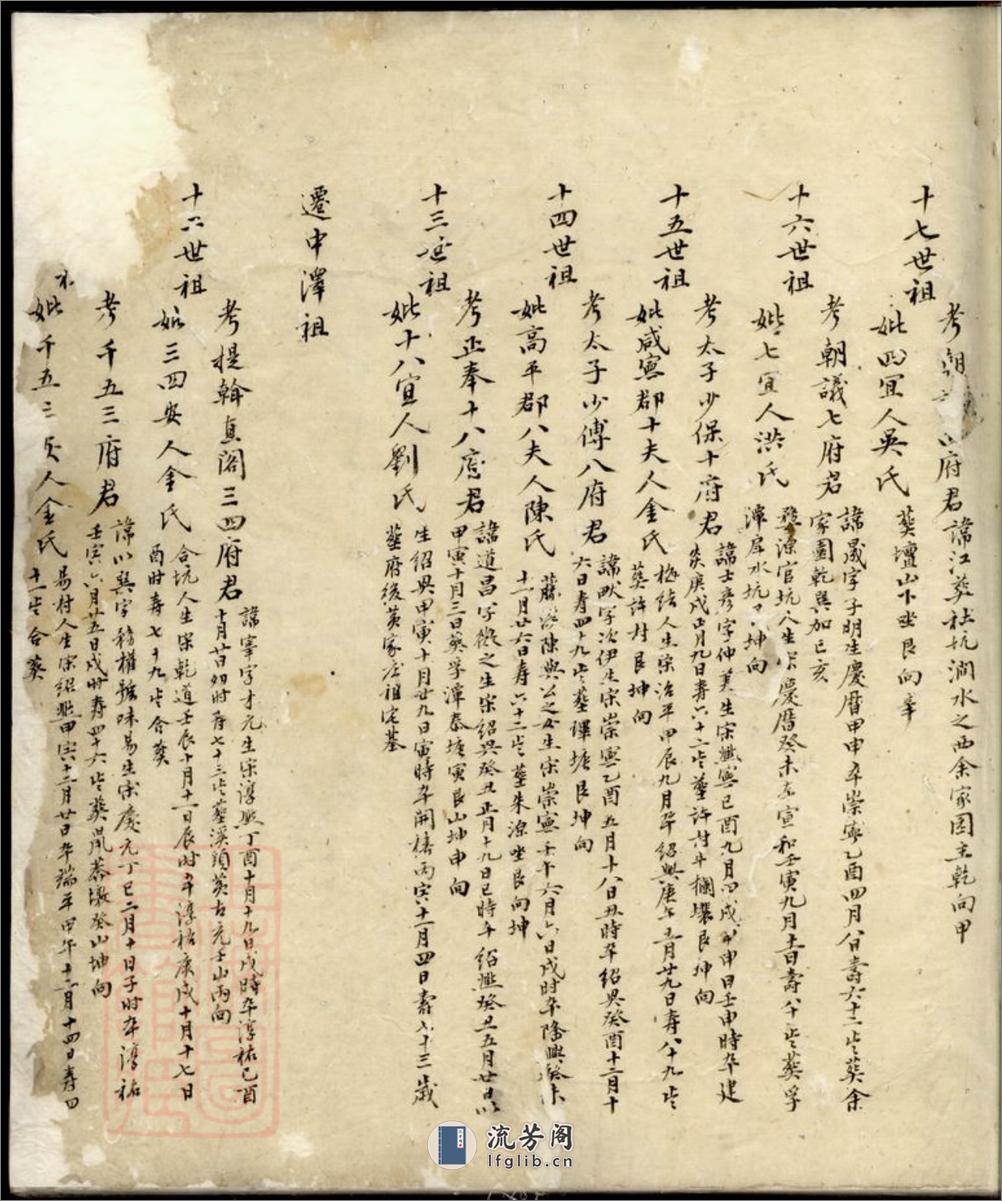 十七世祖
考朝 府君諱江葬社坑澗水之西余家園主乾向甲
妣四宜人吳氏葬壇山下坐艮向辛
十六世祖
考朝議七府君諱晟字子明生慶曆甲申卒崇寧乙酉四月八日壽六十二歲葬余
家園乾巽加已亥
妣七宜人洪氏婺源官坑人生宋慶曆癸未卒宣和壬寅九月 日壽八十歲葬孚
潭岸水坑 坤向
十五世祖
考太子少保十府君諱士彥字仲美生宋熙寧已酉九月 戌 申日壬申時卒建
炎庚戌正月九日壽六十二歲葬許村斗欄壠艮坤向
妣咸寧郡十夫人金氏梅結人生宋治平甲辰九月卒紹興庚午 月廿九日壽八十九歲
葬許村艮坤向
十四世祖
考太子少傅八府君諱畎字次伊生宋崇寧乙酉五月十八日丑時卒紹興癸酉十二月十
六日壽四十九歲葬 塘艮坤向
妣高平郡八夫人陳氏藤溪陳興公之女生宋崇寧壬午六月六日戌時卒隆興癸未
十一月廿六日壽六十二歲葬朱源坐艮向坤
十三世祖
考正奉十八府君諱道昌字 之生宋紹興癸丑正月十九日巳時卒紹熙癸丑五月廿日以
甲寅十月三日葬孚潭泰塘寅艮山坤申向
妣十八宜人劉氏生紹興甲寅十月廿九日寅時卒開禧丙寅十一月四日壽七十三歲
葬府後黃家庄祖定基
遷中澤祖
十二世祖
考提幹直閣三四府君諱寧字才元生宋淳熙丁酉十月十九日戌時卒淳祐已酉
十月廿日卯時壽七十三歲葬溪頭黃古元壬山丙向
妣三四安人金氏合坑人生宋乾道壬辰十月十一日辰時卒淳祐庚戌十月十七日
酉時壽七十九歲合葬
考千五三府君諱以巽字 權號味易生宋慶元丁巳二月十日子時卒淳祐
壬寅六月廿五日戌時壽四十六歲葬 癸山坤向
妣千五三安人金氏易村人生宋紹熙甲寅十二月廿日卒端平甲午十二月十四日壽四
十一歲合葬
流芳阁
lfglib.cn